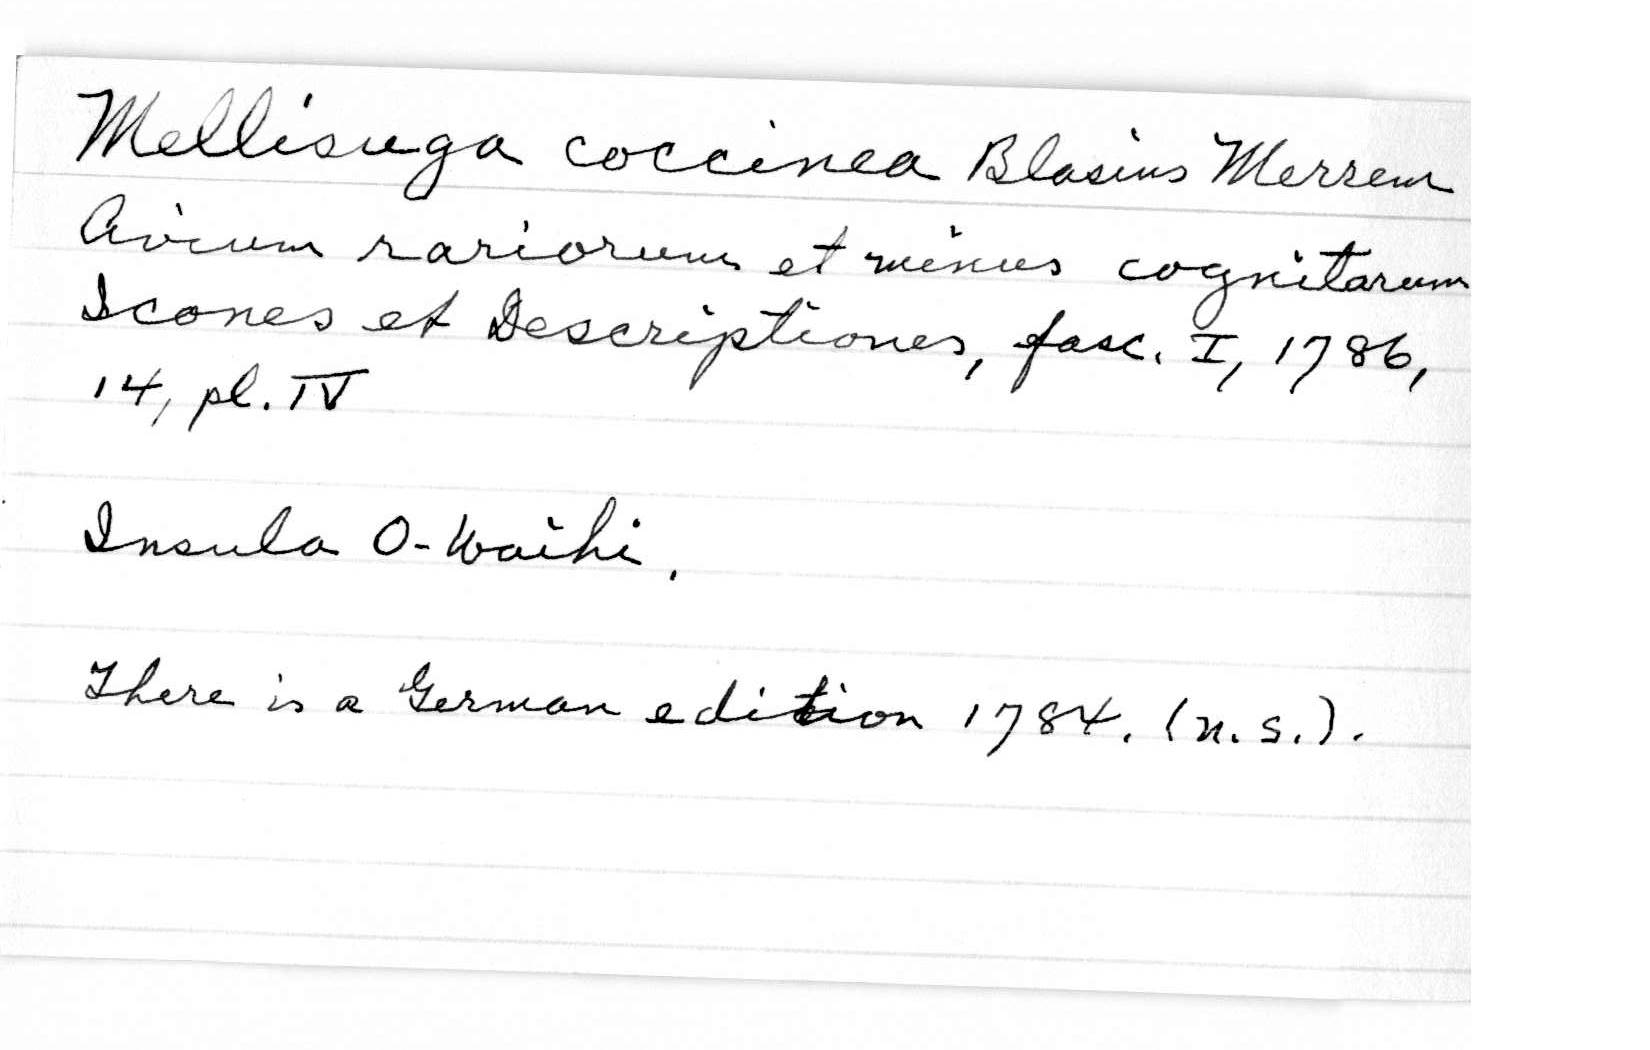 Mellisuga coccinea Blasius Merrem
Avium rariorum et minus cognitarum
Icones et Descriptiones, fasc. I, 1786,
14, pl. IV
Insula O-Waihi.
There is a German edition 1784. (n.s.).